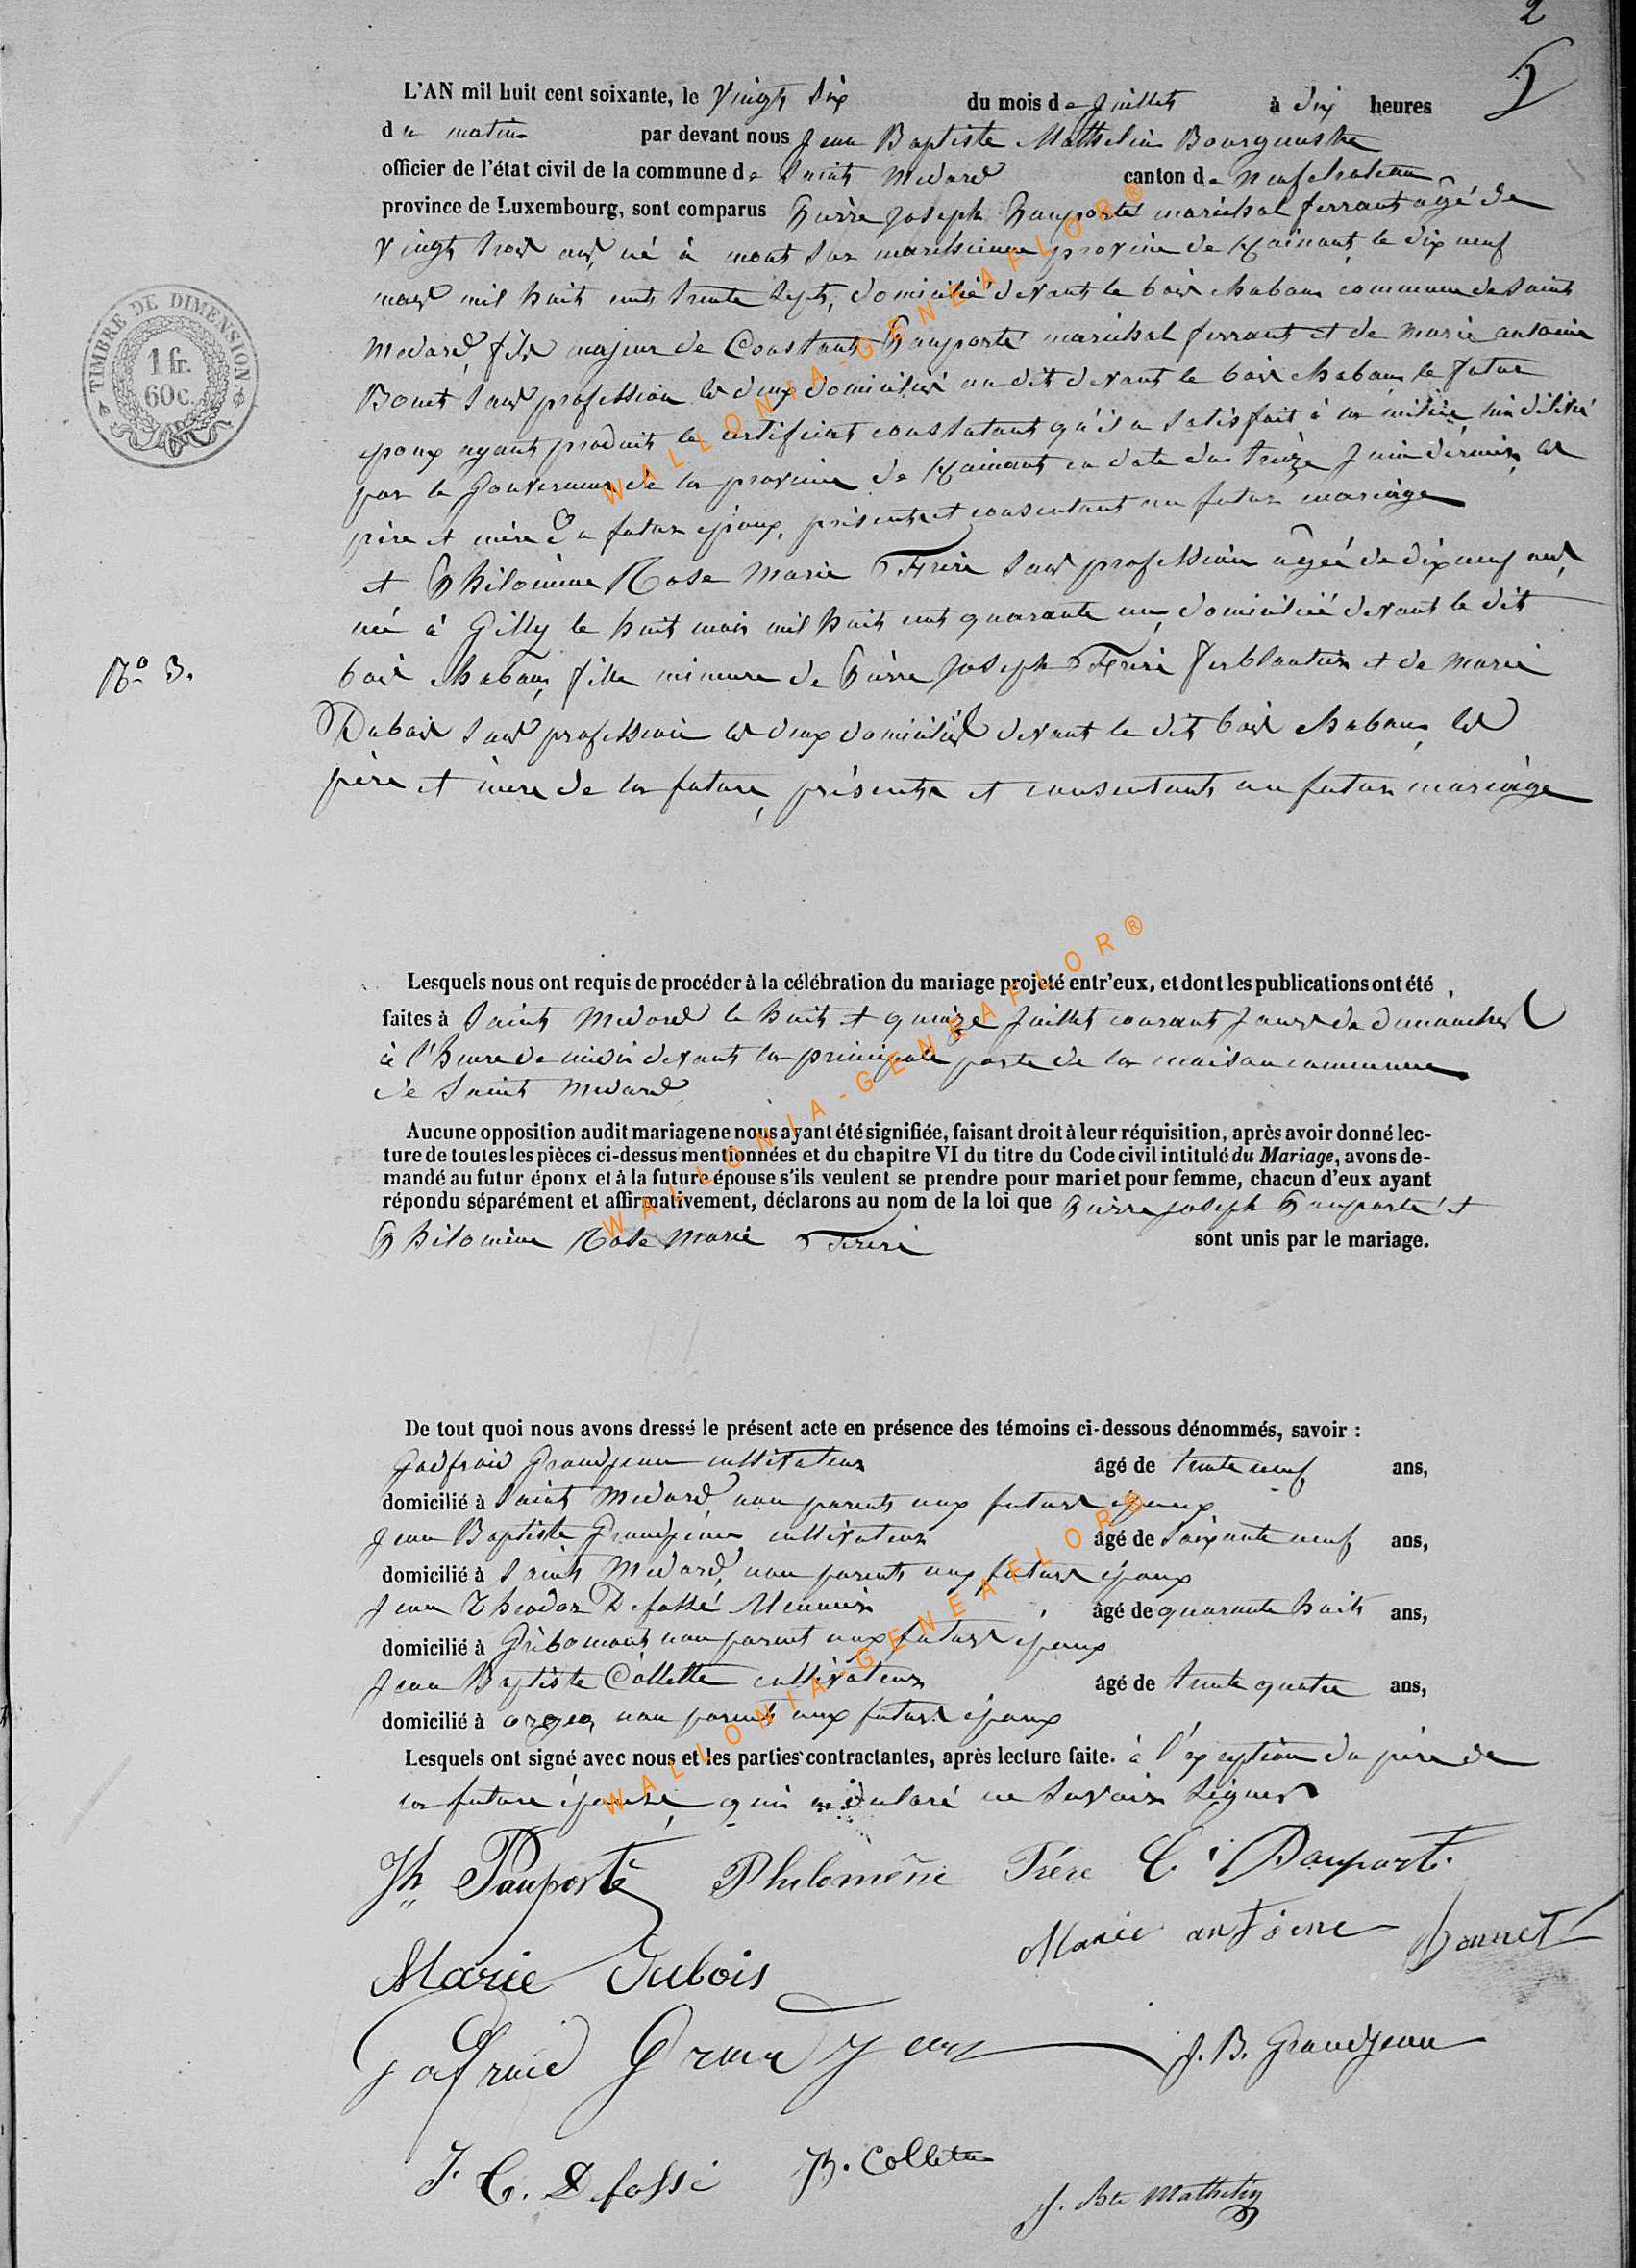 2
5
L'AN mil huit cent soixante, le Vingt Six du mois de Juillet à dix heures
du matin par devant nous Jean Baptiste Mathelin Bourgmestre
officier de l'état civil de la commune de Saint Medard canton de Neufchateau
province de Luxembourg, sont comparus Pierre Joseph Pauporté maréchal ferrant âgé de
Vingt trois ans, né à mont sur marchienne province de Hainaut, le dix neuf
mars mil huit cent trente sept, domicilié devant le bois chabau commune de Saint
Medard, fils majeur de Constant Pauporté maréchal ferrant et de Marie antoine
Bonet Sans profession les deux domiciliés au dit devant le bois chabau, le futur
époux ayant produit le certificat constatant qu'il a satisfait à la milice, lui délivré
par le Gouverneur de la province de Hainaut en date du treize Juin dernier, les
père et mère du futur époux, présents et consentant au futur mariage
et Philomène Rose Marie Frère Sans profession âgée de dix neuf ans,
née à Gilly le huit mars mil huit cent quarante un, domiciliée devant le dit
bois chabau, fille mineure de Pierre Joseph Frère ferblantier et de Marie
N° 3.
Dubois Sans profession les deux domiciliés devant le dit bois chabau, les
père et mère de la future, présents et consentants au futur mariage
TIMBRE DE DIMENSION
1 fr.
60 c.
Lesquels nous ont requis de procéder à la célébration du mariage projeté entr'eux, et dont les publications ont été
faites à Saint Medard le huit et quinze Juillet courant Jours de dimanches
à l'heure de midi devant la principale porte de la maison commune
de Saint Medard
Aucune opposition audit mariage ne nous ayant été signifiée, faisant droit à leur réquisition, après avoir donné lec-
ture de toutes les pièces ci-dessus mentionnées et du chapitre VI du titre du Code civil intitulé du Mariage, avons de-
mandé au futur époux et à la future épouse s'ils veulent se prendre pour mari et pour femme, chacun d'eux ayant
répondu séparément et affirmativement, déclarons au nom de la loi que Pierre Joseph Pauporté et
Philomène Rose Marie Frère sont unis par le mariage.
De tout quoi nous avons dressé le présent acte en présence des témoins ci-dessous dénommés, savoir :
Godfroid Grandjean cultivateur âgé de trente neuf ans,
domicilié à Saint Medard non parent aux futurs époux
Jean Baptiste Grandjean cultivateur âgé de Soixante neuf ans,
domicilié à Saint Medard, non parent aux futurs époux
Jean Theodor Defossé Meunier âgé de quarante huit ans,
domicilié à Gribomont non parent aux futurs époux
Jean Baptiste Collette cultivateur âgé de trente quatre ans,
domicilié à orgeo, non parent aux futurs époux
Lesquels ont signé avec nous et les parties contractantes, après lecture faite. à l'exception du père de
la future épouse, qui a déclaré ne Savoir Signer
Jh Pauporté Philomène Frére C Pauporté
Marie antoine bonnet
Marie Dubois
Gofroid Grandjean J. B. Grandjean
J. T. Defossé JB. Collette
J. Bte Mathelin
WALLONIA-GENEAFLOR®
WALLONIA-GENEAFLOR®
WALLONIA-GENEAFLOR®